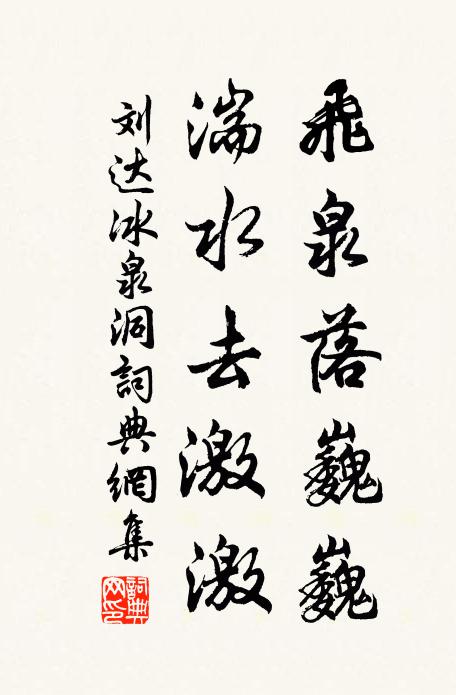 飛泉落巍巍
湍水去激激
刘达冰泉洞詞典網集
詞典网印